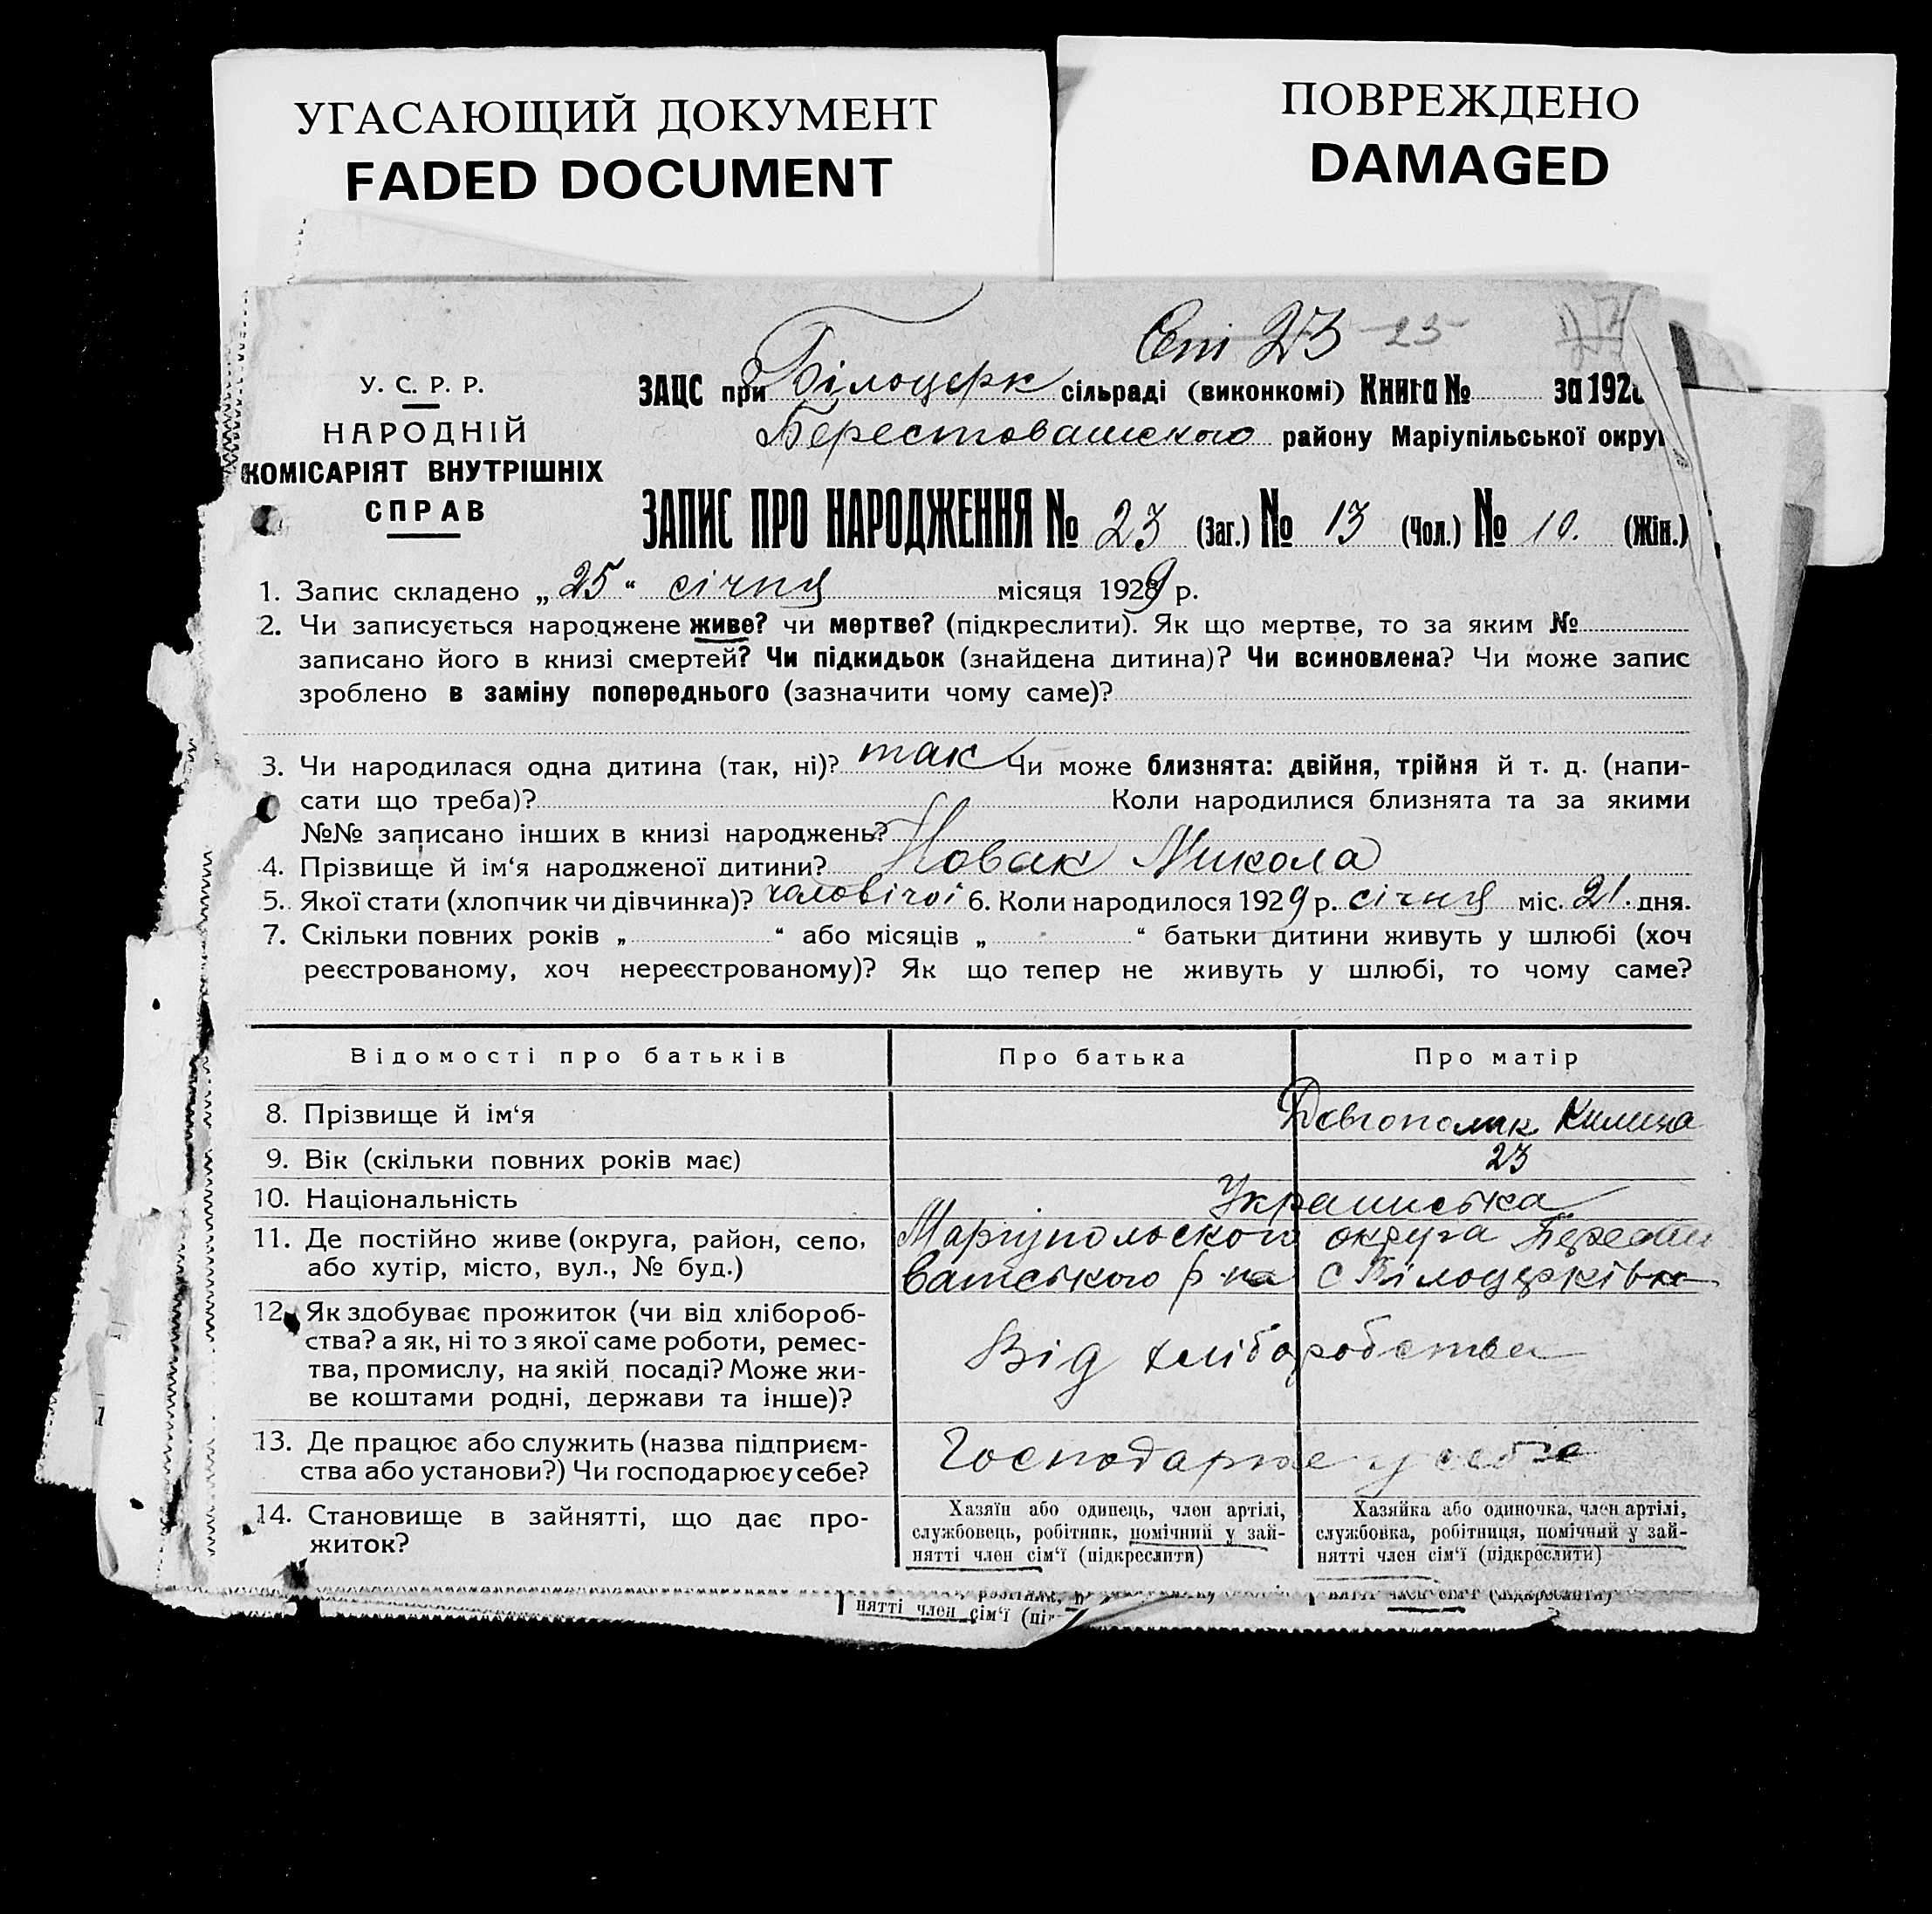 УГАСАЮЩИЙ ДОКУМЕНТ
FADED DOCUMENT
ПОВРЕЖДЕНО
DAMAGED
23 25
У. С. Р. Р.
НАРОДНІЙ
КОМІСАРІЯТ ВНУТРІШНІХ
СПРАВ
ЗАЦС при Білоцерк сільраді (виконкомі) Книга № за 192
Берестоватского району Маріупільської окру
ЗАПИС ПРО НАРОДЖЕННЯ № 23 (Заг.) № 13 (Чол.) № 10. (Жін.)
1. Запис складено „ 25 “ січня місяця 1929 р.
2. Чи записується народжене живе? чи мертве? (підкреслити). Як що мертве, то за яким №
записано його в книзі смертей? Чи підкидьок (знайдена дитина)? Чи всиновлена? Чи може запис
зроблено в заміну попереднього (зазначити чому саме)?
3. Чи народилася одна дитина (так, ні)? так Чи може близнята: двійня, трійня й т. д. (напи-
сати що треба)? Коли народилися близнята та за якими
№№ записано інших в книзі народжень?
4. Прізвище й ім‘я народженої дитини? Новак Микола
5. Якої стати (хлопчик чи дівчинка)? чоловічої 6. Коли народилося 1929 р. січня міс. 21. дня.
7. Скільки повних років „ “ або місяців „ “ батьки дитини живуть у шлюбі (хоч
реєстрованому, хоч нереєстрованому)? Як що тепер не живуть у шлюбі, то чому саме?
Відомості про батьків Про батька Про матір
8. Прізвище й ім‘я Довгополик Килина
9. Вік (скільки повних років має) 23
10. Національність Украинська
11. Де постійно живе (округа, район, село, Маріупольского округа
або хутір, місто, вул., № буд.) ватського р-на с Білоцерківка
12. Як здобуває прожиток (чи від хлібороб-
ства? а як, ні то з якої саме роботи, ремес-
тва, промислу, на якій посаді? Може жи-
ве коштами родні, держави та інше)?
Від хліборобства
13. Де працює або служить (назва підприєм-
ства або установи?) Чи господарює у себе?
Господарює у себе
14. Становище в зайнятті, що дає про-
житок?
Хазяїн або одинець, член артілі,
службовець, робітник, помічний у зай-
нятті член сім‘ї (підкреслити)
Хазяйка або одиночка, член артілі,
службовка, робітниця, помічний у зай-
нятті член сім‘ї (підкреслити)
нятті член сім‘ї (під
нятті член сім‘ї (підкреслити)